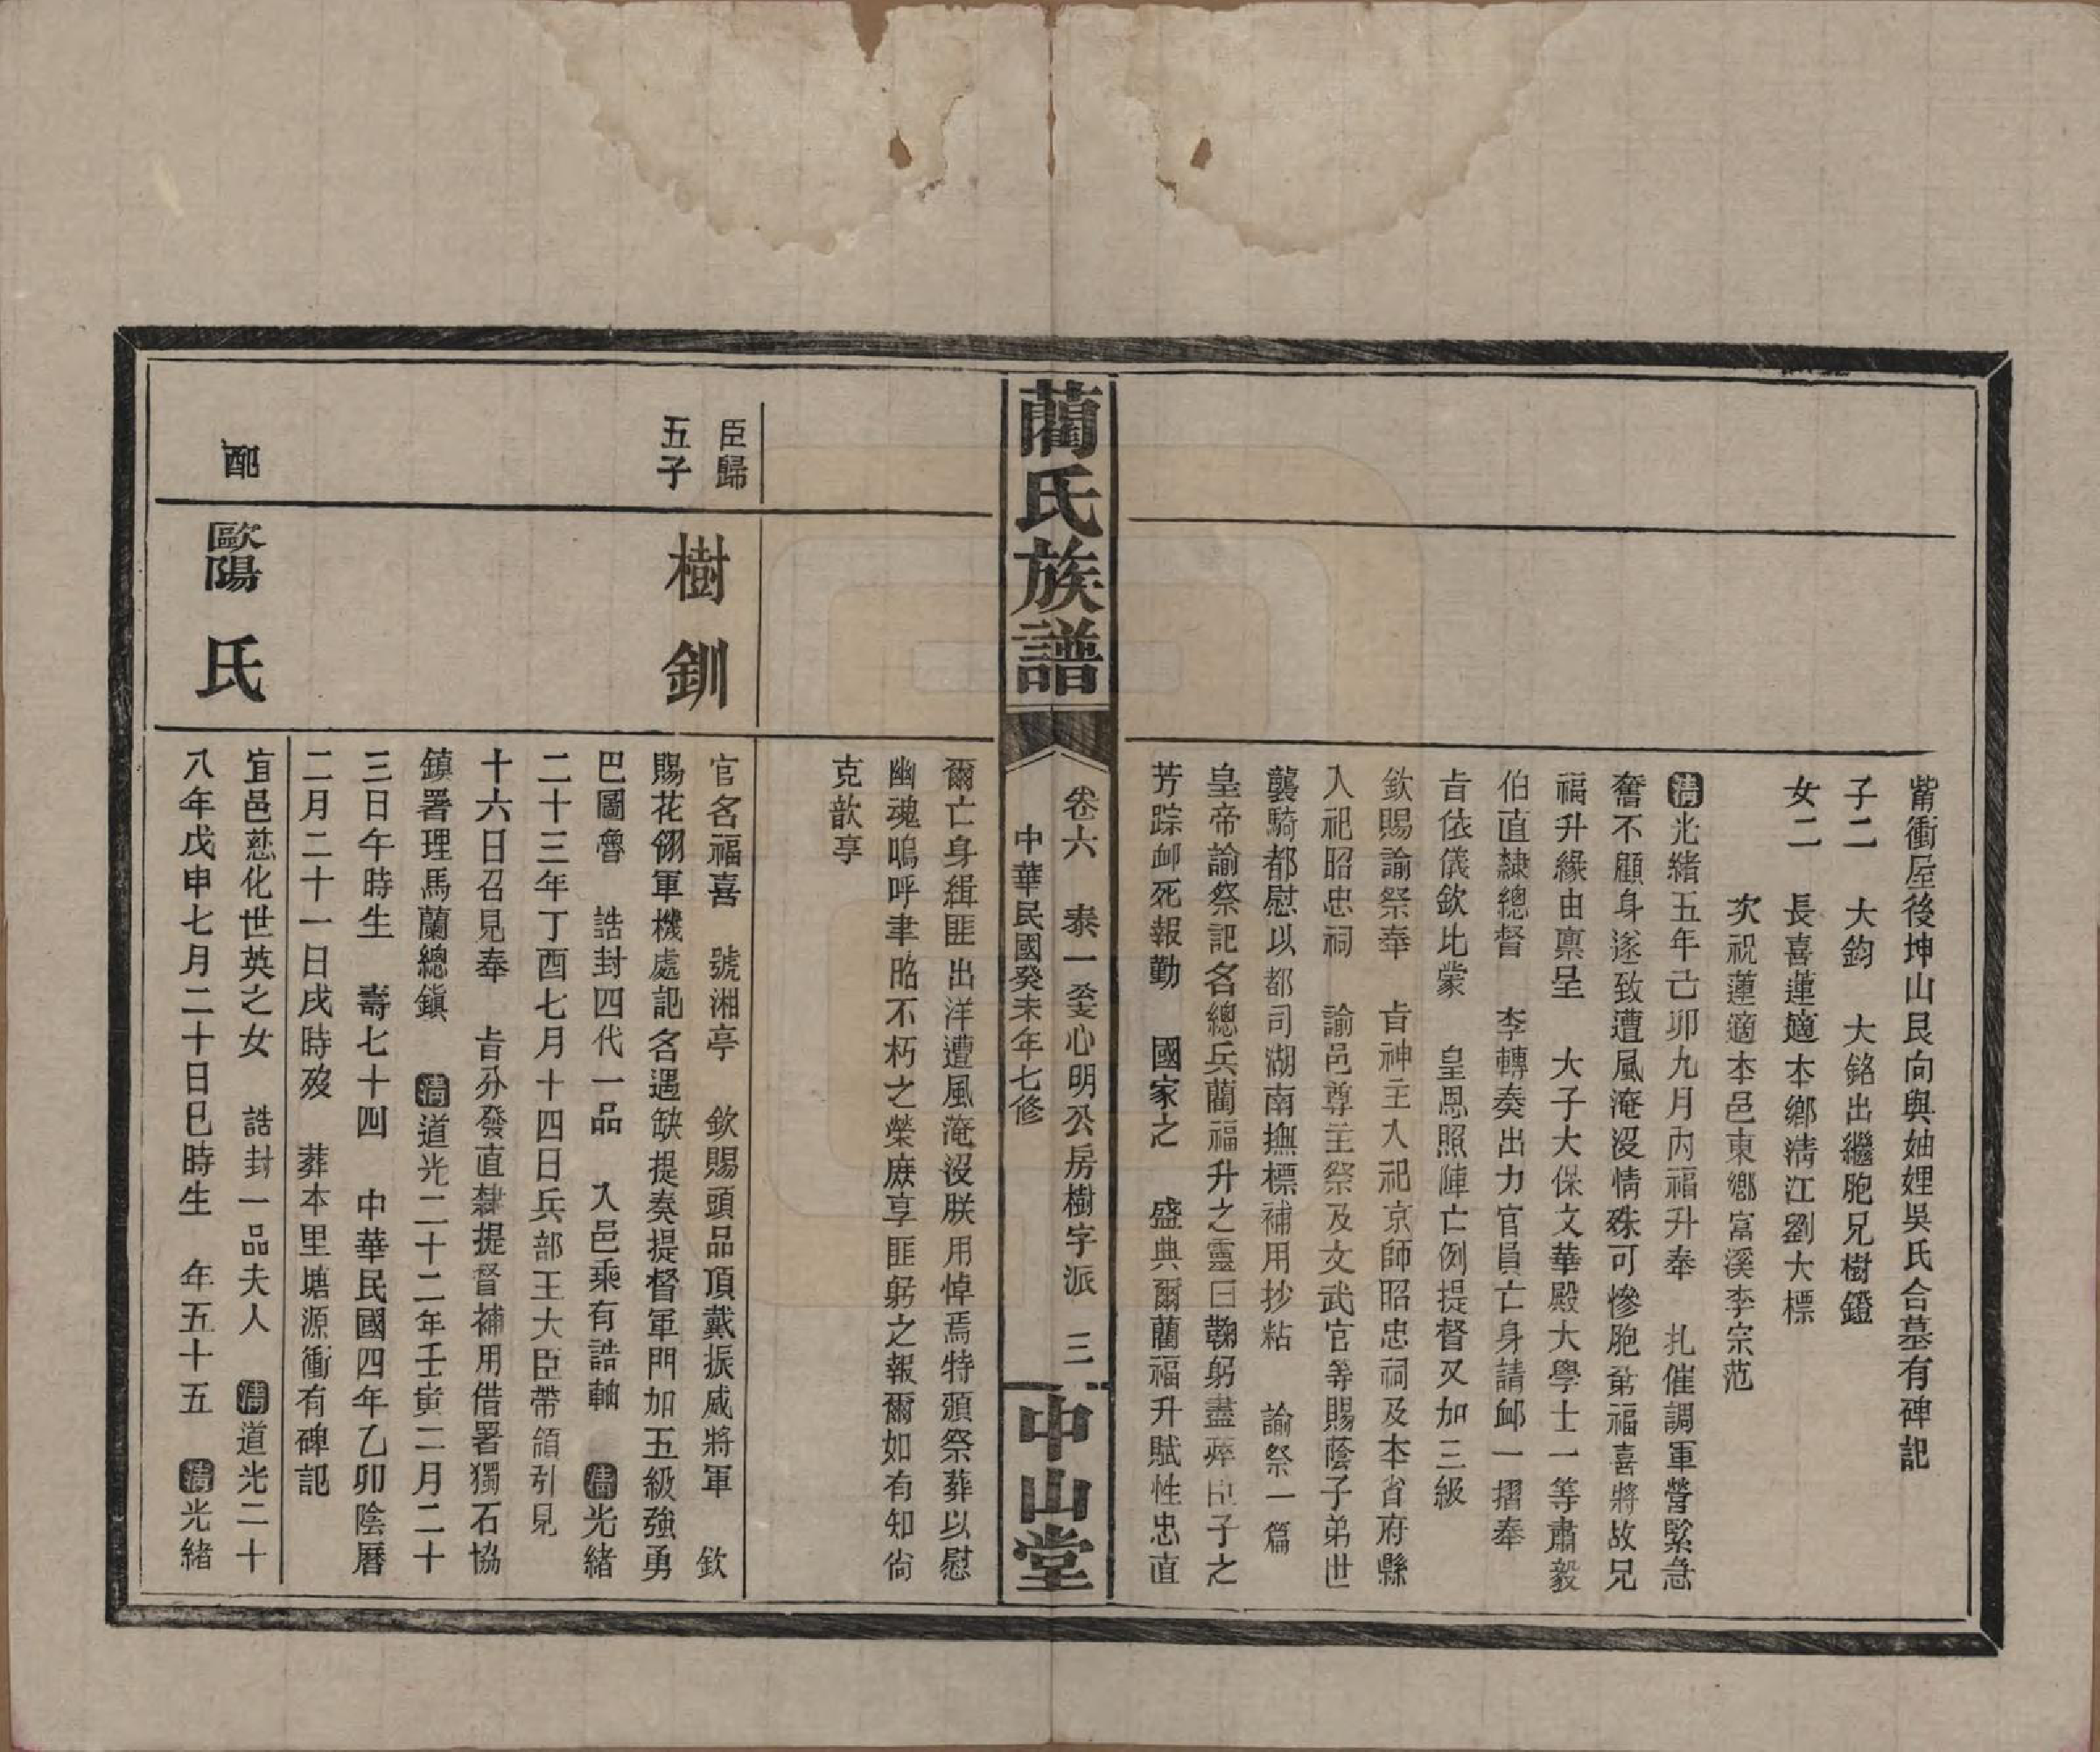 觜衝屋後坤山艮向與妯娌吳氏合墓有碑記
子二　大鈞　大銘出繼胞兄樹鐙
女二　長喜蓮適本鄉淸江劉大標
次祝蓮適本邑東鄉富溪李宗范
淸光緒五年己卯九月內福升奉　扎催調軍營緊急
奮不顧身遂致遭風淹沒情殊可慘胞弟福喜將故兄
福升緣由稟呈　大子大保文華殿大學士一等肅毅
伯直隸總督　李轉奏出力官員亡身請卹一摺奉
旨依儀欽比蒙　皇恩照陣亡例提督又加三級
欽賜諭祭奉　旨神主入祀京師昭忠祠及本省府縣
入祀昭忠祠　諭邑尊主祭及文武官等賜蔭子弟世
襲騎都慰以都司湖南撫標補用抄粘　諭祭一篇
皇帝諭祭記名總兵藺福升之靈曰鞠躬盡瘁臣子之
芳踪卹死報勤　國家之　盛典爾藺福升賦性忠直
藺氏族譜
卷六　泰一娑心明公房樹字派　三
中華民國癸未年七修
中山堂
爾亡身緝匪出洋遭風淹沒朕用悼焉特頒祭葬以慰
幽魂嗚呼聿昭不朽之榮庶享匪躬之報爾如有知尙
克歆享
臣歸
五子
樹釧
官名福喜　號湘亭　欽賜頭品頂戴振威將軍　欽
賜花翎軍機處記名遇缺提奏提督軍門加五級強勇
巴圖魯　誥封四代一品　入邑乘有誥軸　淸光緒
二十三年丁酉七月十四日兵部王大臣帶領引見
十六日召見奉　旨分發直隸提督補用借署獨石協
鎮署理馬蘭總鎮　淸道光二十二年壬寅二月二十
三日午時生　壽七十四　中華民國四年乙卯陰曆
二月二十一日戌時歿　葬本里塘源衝有碑記
配
歐陽氏
宜邑慈化世英之女　誥封一品夫人　淸道光二十
八年戊申七月二十日巳時生　年五十五　淸光緒